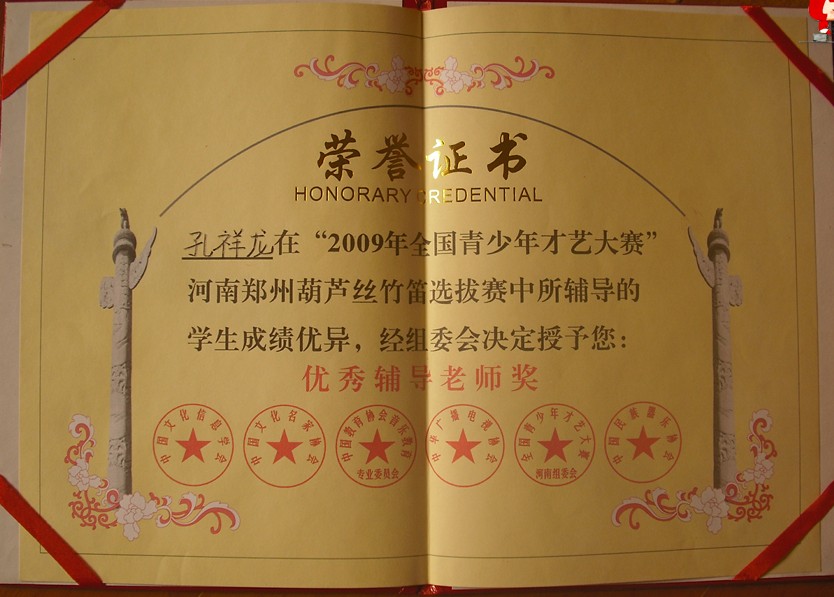 荣誉证书
HONORARY CREDENTIAL
孔祥龙在“2009年全国青少年才艺大赛”
河南郑州葫芦丝竹笛选拔赛中所辅导的
学生成绩优异，经组委会决定授予您：
优秀辅导老师奖
中国文化信息学会
中国文化名家协会
中国教育协会音乐教育
专业委员会
中华广播电视协会
全国青少年才艺大赛
河南组委会
中国民族器乐协会